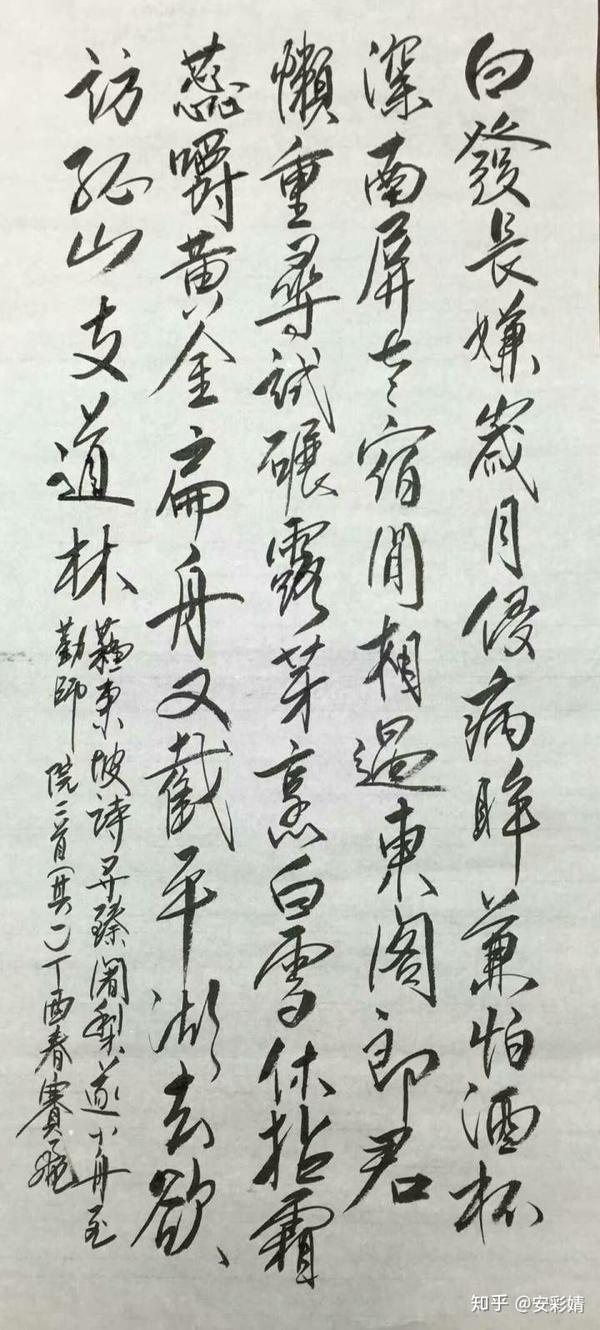 白發長嫌歲月侵病眸兼怕酒杯
深南屏老宿閒相過東閣郎君
懶重尋試碾露芽烹白雪休拈霜
蕊嚼黃金扁舟又截平湖去欲、
訪孤山支道林
蘇東坡詩寻臻闍梨遂小舟至
勤師院二首(其一)丁酉春賽
知乎 @安彩婧